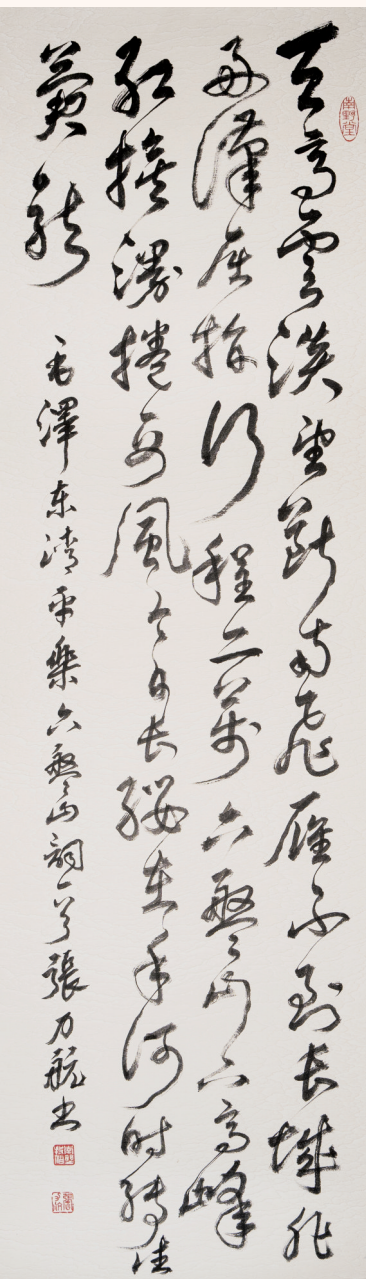 南野堂
天高雲淡望斷南飛雁不到长城非
好漢屈指行程二萬六盤山上高峰
紅旗漫捲西風今日长纓在手何时縛住
蒼龍
毛澤东清平樂六盤山詞一首張力航书